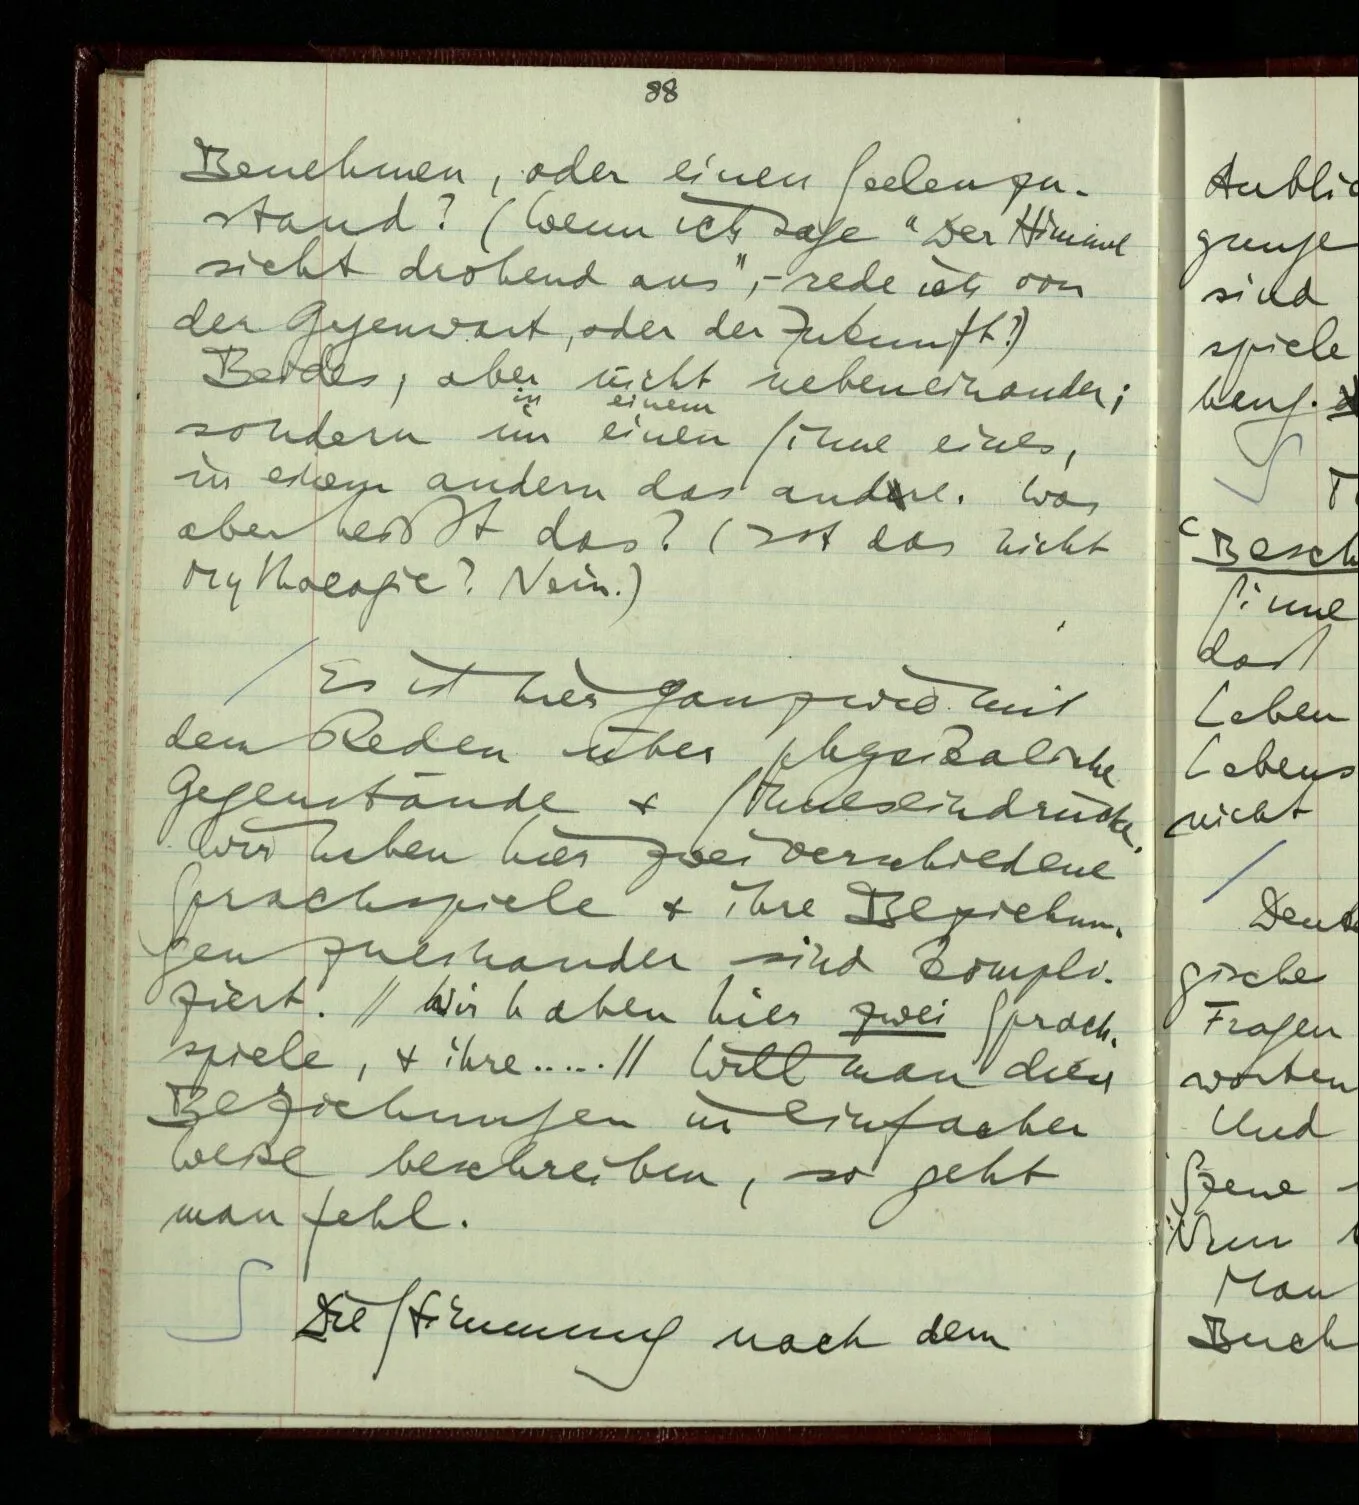 88
Benehmen, oder einen Seelenzu-
stand? (Wenn ich sage "Der Himmel
sieht drohend aus",- rede ich von
der Gegenwart, oder der Zukunft?)
Beides, aber nicht nebeneinander;
in einem
sondern im einen Sinne eines,
in einem andern das andere. Was
aber heißt das? (Ist das nicht
Mythologie? Nein.)
/ Es ist hier ganz wie mit
dem Reden über physikalische
Gegenstände & Sinneseindrücke.
Wir haben hier zwei verschiedene
Sprachspiele & ihre Beziehun-
gen zueinander sind kompli-
ziert. // Wir haben hier zwei Sprach-
spiele, & ihre..... // Will man diese
Beziehungen in einfacher
Weise beschreiben, so geht
man fehl.
∫ Die Stimmung nach dem
Anblic
gunge
sind
spiele
heng.
∫
Besch
Sinne
das
Leben
Lebens
nicht
/
Denk
gische
Fragen
worten
Und
Szene
ihm
Man
Buch